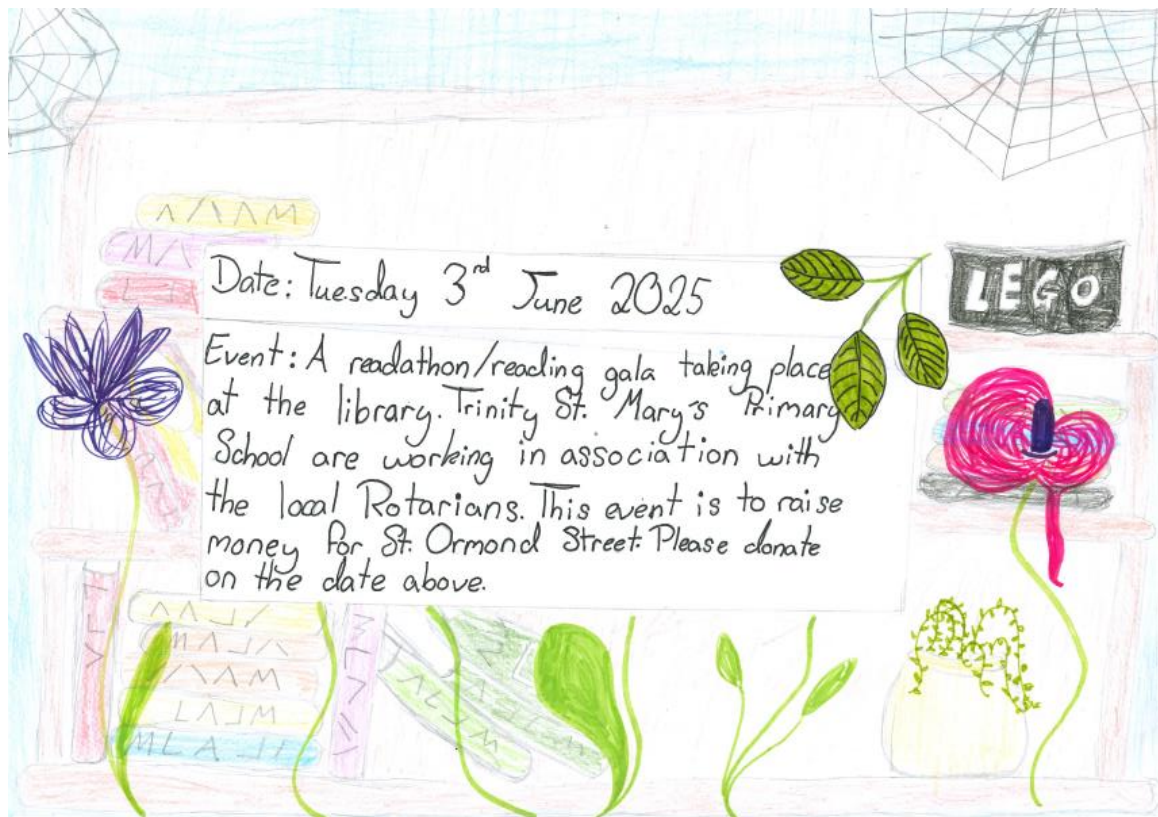 Date: Tuesday 3rd June 2025
LEGO
Event: A readathon/reading gala taking place
at the library. Trinity St. Mary's Primary
School are working in association with
the local Rotarians. This event is to raise
money for St. Ormond Street. Please donate
on the date above.